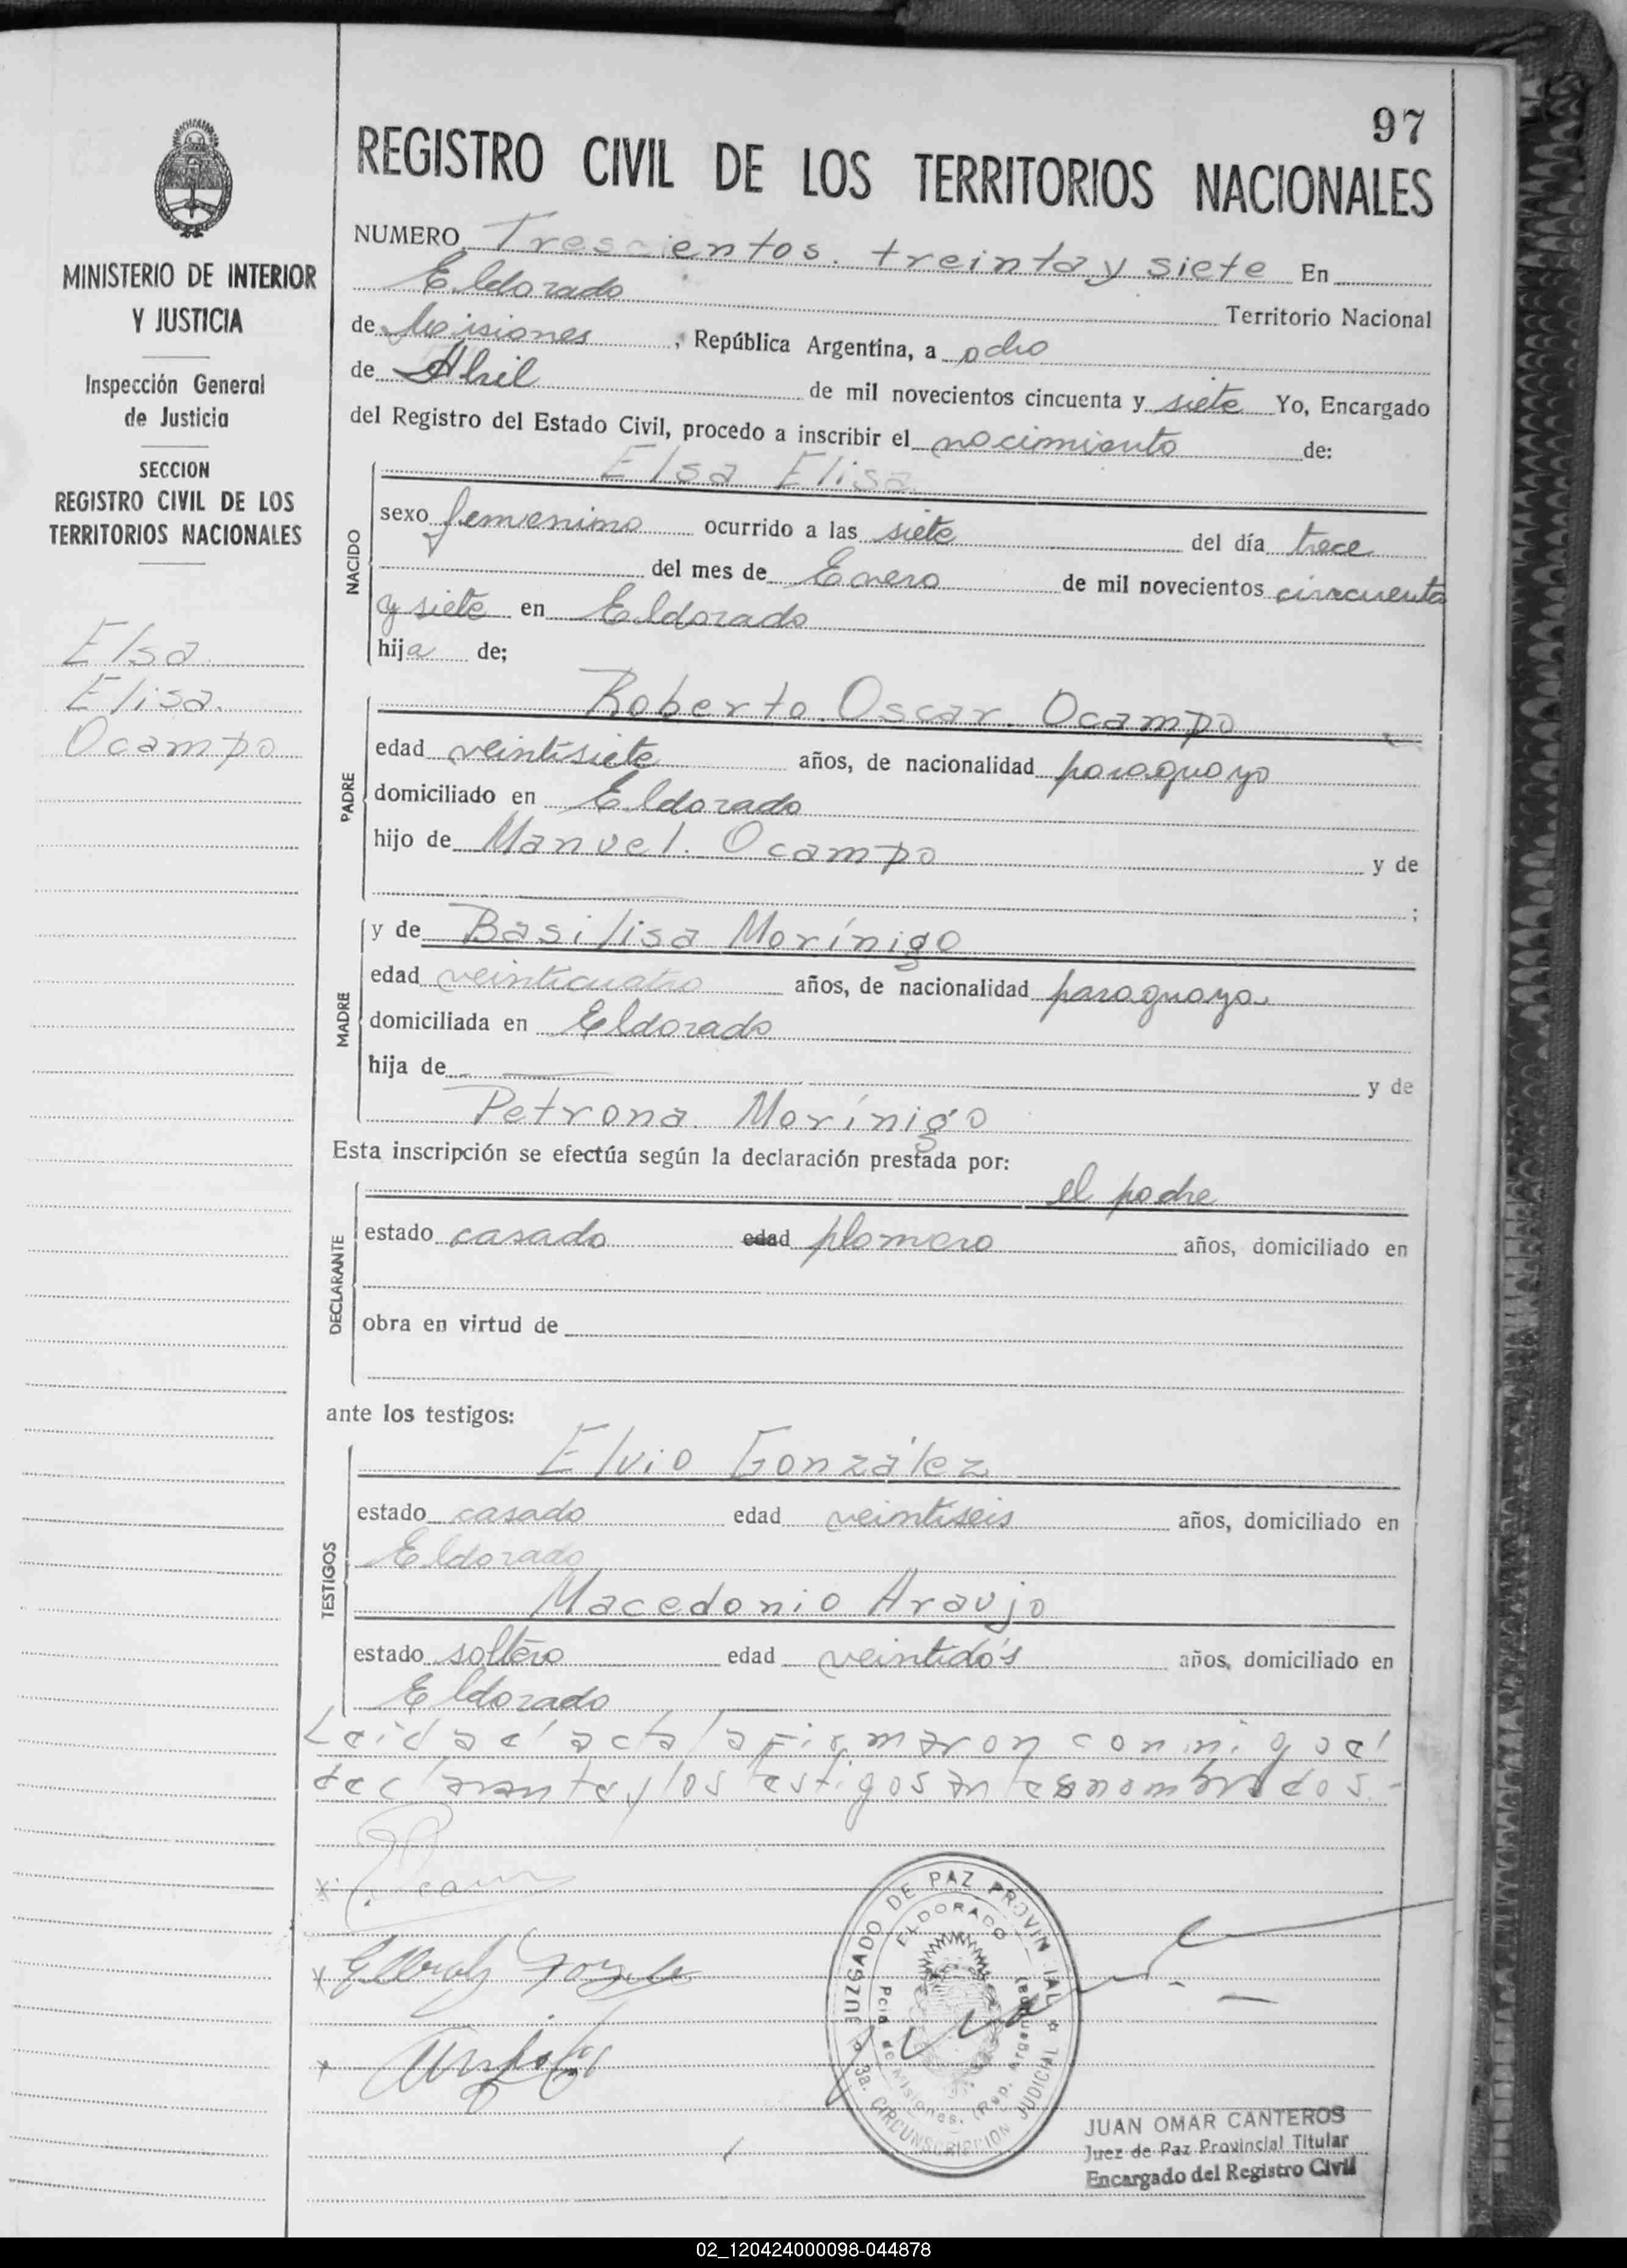 97
REGISTRO CIVIL DE LOS TERRITORIOS NACIONALES
MINISTERIO DE INTERIOR
Y JUSTICIA
Inspección General
de Justicia
SECCION
REGISTRO CIVIL DE LOS
TERRITORIOS NACIONALES
Elsa
Elisa
Ocampo
NUMERO Trescientos treinta y siete En
Eldorado Territorio Nacional
de Misiones, República Argentina, a ocho
de Abril de mil novecientos cincuenta y siete Yo, Encargado
del Registro del Estado Civil, procedo a inscribir el nacimiento de:
NACIDO
Elsa Elisa
sexo femenino ocurrido a las siete del día trece
del mes de Enero de mil novecientos cincuenta
y siete en Eldorado
hija de;
PADRE
Roberto Oscar Ocampo
edad veintisiete años, de nacionalidad paraguayo
domiciliado en Eldorado
hijo de Manuel Ocampo y de
;
MADRE
y de Basilisa Morínigo
edad veinticuatro años, de nacionalidad paraguaya
domiciliada en Eldorado
hija de — y de
Petrona Morínigo
Esta inscripción se efectúa según la declaración prestada por:
DECLARANTE
el padre
estado casado edad plomero años, domiciliado en
obra en virtud de
ante los testigos:
TESTIGOS
Elvio González
estado casado edad veintiseis años, domiciliado en
Eldorado
Macedonio Araujo
estado soltero edad veintidós años, domiciliado en
Eldorado
Leida el acta la firmaron conmigo el
declarante y los testigos
JUZGADO DE PAZ PROVINCIAL
ELDORADO
Pcia de Misiones. (Rep. Argentina)
3a. CIRCUNSCRIPCION JUDICIAL
JUAN OMAR CANTEROS
Juez de Paz Provincial Titular
Encargado del Registro Civil
02_120424000098-044878